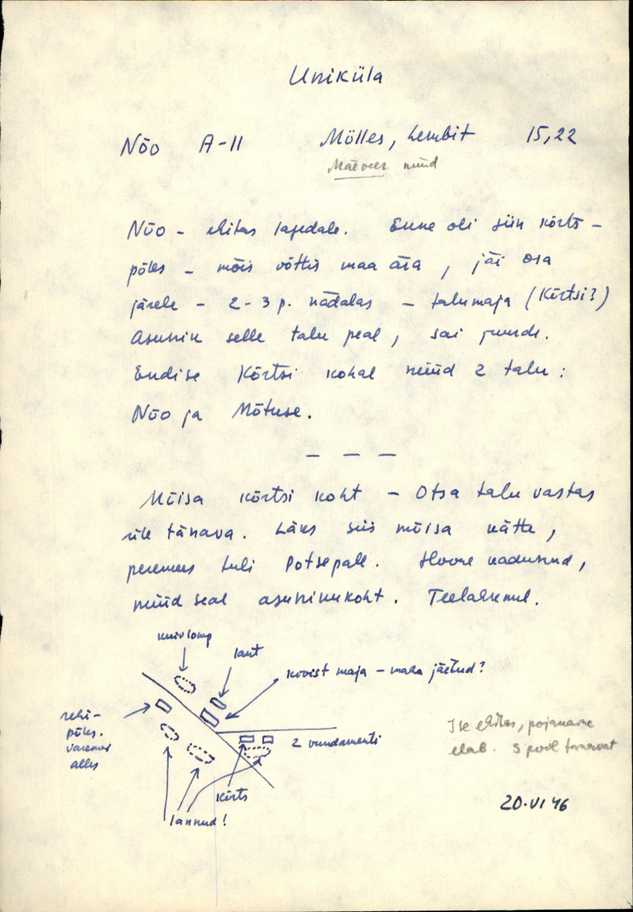 Uniküla
Nõo A-11 Mölles, Lembit 15,22
nüüd
Nõo - ehitas lagedale. Enne oli siin kõrts -
põles - mõis võttis maa ära, jäi osa
järele - 2-3 p. nädalas - talumaja (Kõrtsi?)
Asunik selle talu peal, sai juurde.
Endise Kõrtsi kohal nüüd 2 talu:
Nõo ja Mõtuse.
— — —
Mõisa kõrtsi koht - Otsa talu vastas
üle tänava. Läks siis mõisa kätte,
peremees tuli Potsepale. Hoone kadunud,
nüüd seal asunikukoht. Teelahkmel.
laut
koost maja - maha jäetud?
rehi-
põles.
varemed
alles
2 vundamenti
Kõrts
kannud!
Ise ehitas, pojanaine
elab. S pool
20.VI 46